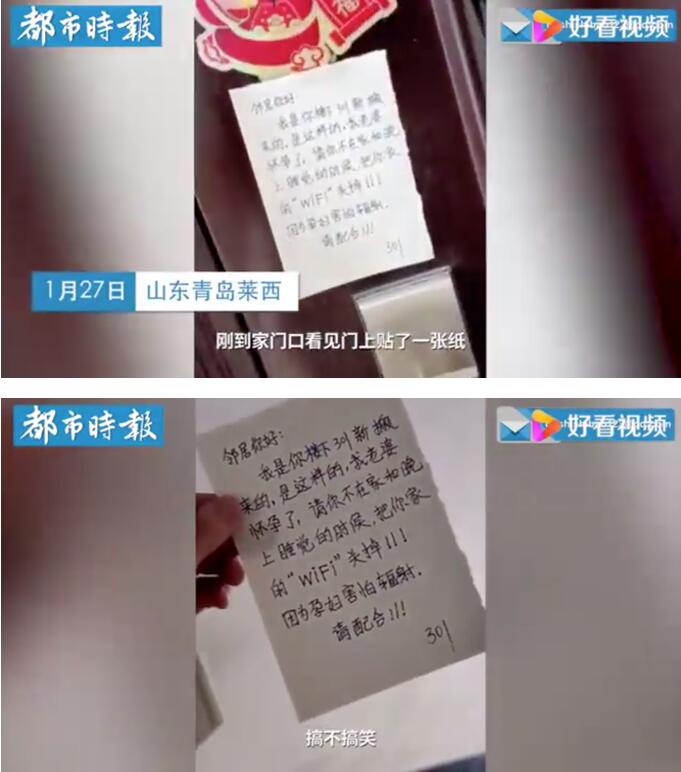 都市時報
好看视频
福
邻居你好:
我是你楼下301新搬
来的,是这样的,我老婆
怀孕了,请你不在家和晚
上睡觉的时候,把你家
的"WiFi"关掉!!!
因为孕妇害怕辐射.
请配合!!!
301
1月27日
山东青岛莱西
刚到家门口看见门上贴了一张纸
都市時報
好看视频
邻居你好:
我是你楼下301新搬
来的,是这样的,我老婆
怀孕了,请你不在家和晚
上睡觉的时候,把你家
的"WiFi"关掉!!!
因为孕妇害怕辐射.
请配合!!!
301
搞不搞笑